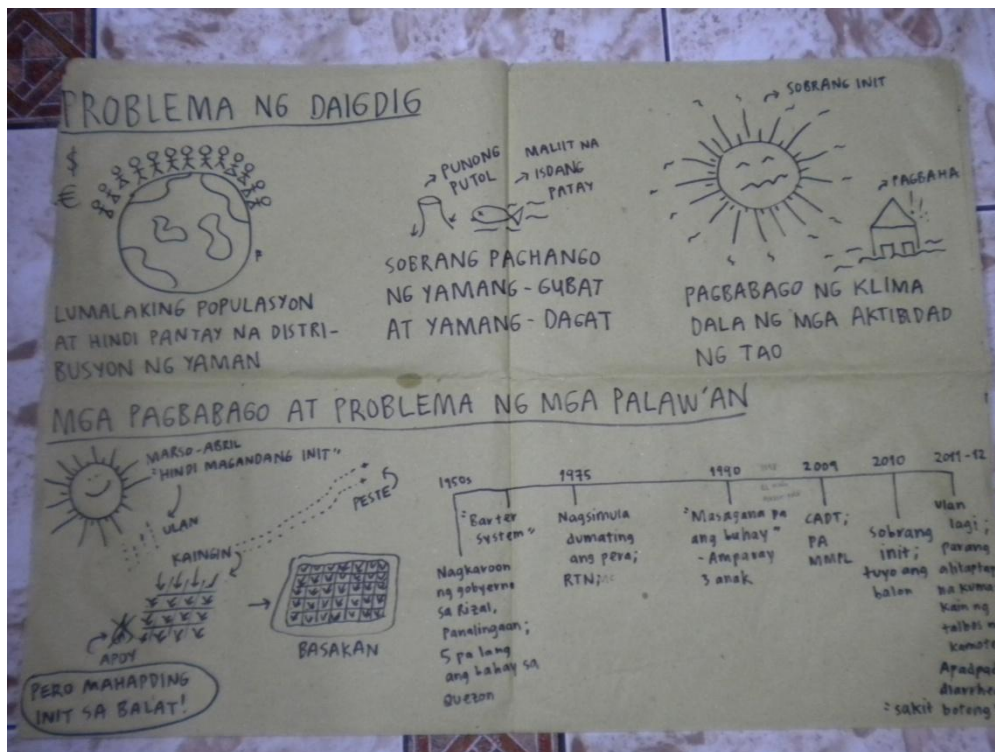 PROBLEMA NG DAIGDIG
$
€
LUMALAKING POPULASYON
AT HINDI PANTAY NA DISTRI-
BUSYON NG YAMAN
PUNONG
PUTOL
MALIIT NA
ISDANG
PATAY
SOBRANG PAGHANGO
NG YAMANG-GUBAT
AT YAMANG-DAGAT
SOBRANG INIT
PAGBAHA
PAGBABAGO NG KLIMA
DALA NG MGA AKTIBIDAD
NG TAO
MGA PAGBABAGO AT PROBLEMA NG MGA PALAW'AN
MARSO-ABRIL
"HINDI MAGANDANG INIT"
ULAN
KAINGIN
PESTE
APOY
BASAKAN
PERO MAHAPDING
INIT SA BALAT!
1950s
"Barter
System"
Nagkaroon
ng gobyerno
sa Rizal,
Panalingaan;
5 pa lang
ang bahay sa
Quezon
1975
Nagsimula
dumating
ang pera;
RTN;
1990
"Masagana pa
ang buhay"
- Amparay
3 anak
2009
CADT;
PA
MMPL
2010
Sobrang
init;
tuyo ang
balon
2011-12
Ulan
lagi;
parang
na kuma
kain ng
talbos n
kamote
diarrhe
"sakit